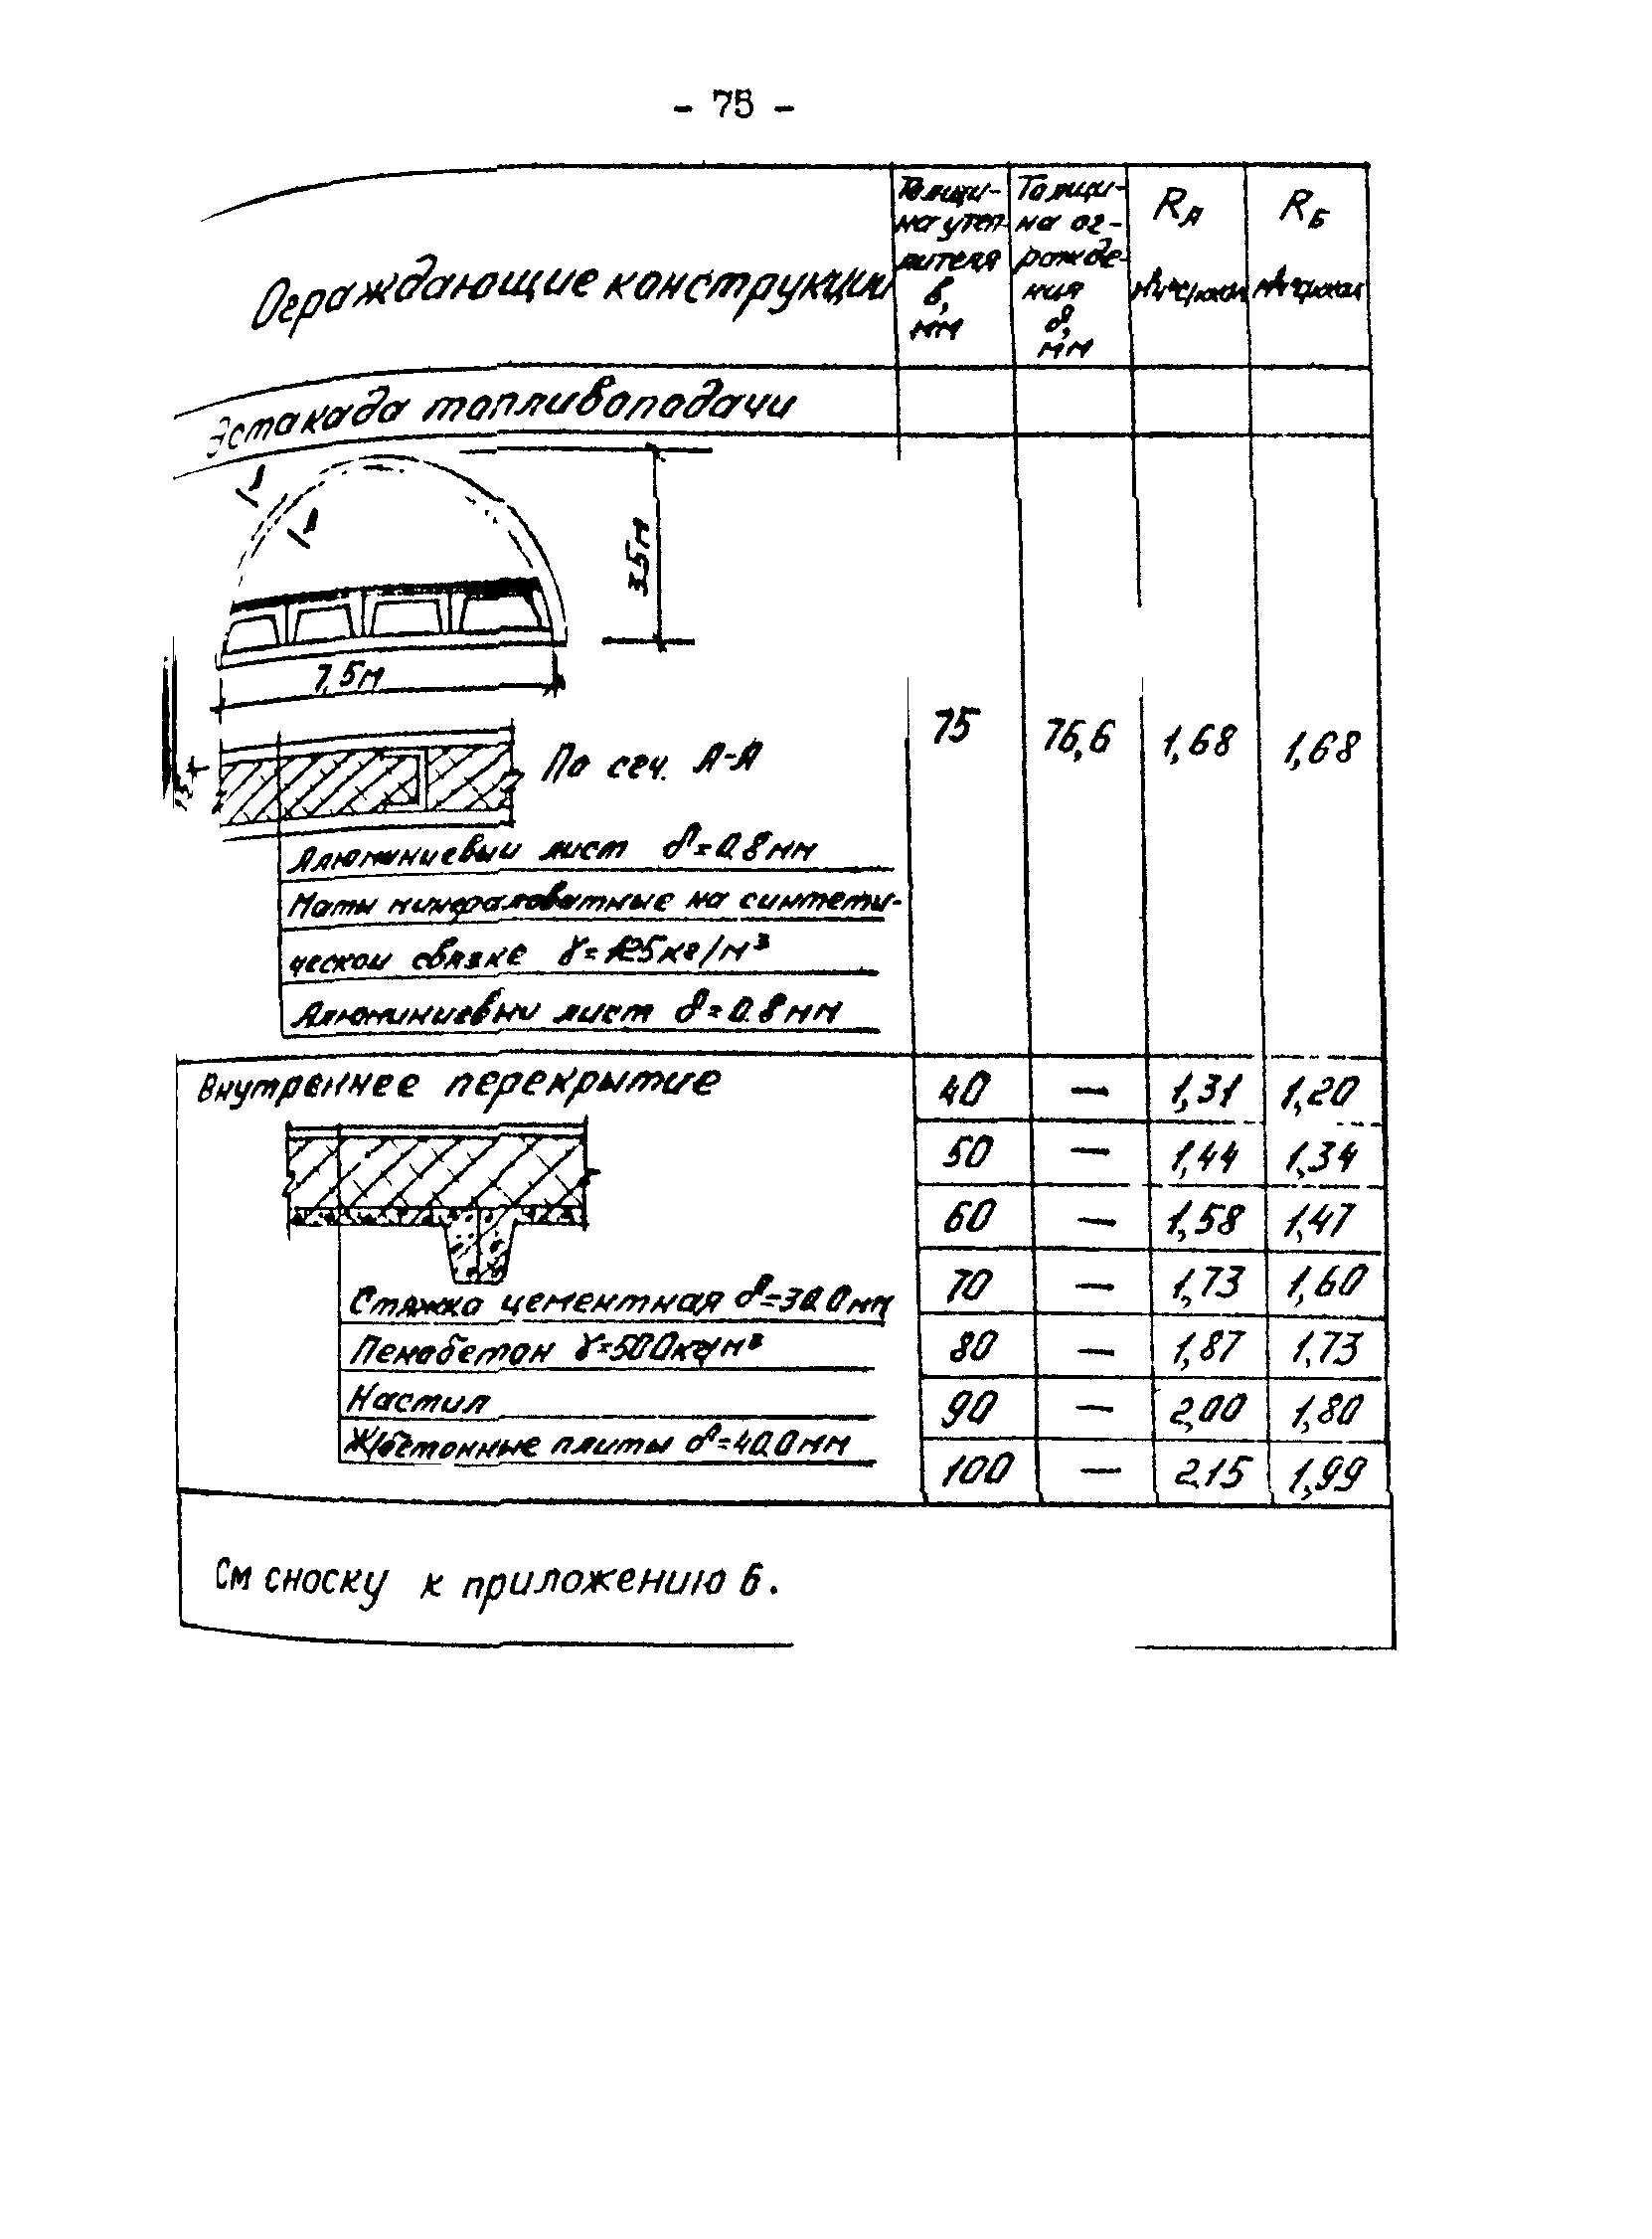 - 75 -
Ограждающие конструкции
Толщи-
на утеп-
лителя
в,
мм
Толщи-
на ог-
ражде-
ния
δ,
мм
RА
м²ч°С/ккал
RБ
м²ч°С/ккал
Эстакада топливоподачи
3,5м
7,5м
По сеч. А-А
75 76,6 1,68 1,68
Алюминиевый лист δ=0.8мм
Маты минераловатные на синтети-
ческой связке γ=125кг/м³
Алюминиевый лист δ=0.8мм
Внутреннее перекрытие
40 — 1,31 1,20
50 — 1,44 1,34
60 — 1,58 1,47
70 — 1,73 1,60
80 — 1,87 1,73
90 — 2,00 1,80
100 — 2.15 1,99
Стяжка цементная δ=30.0мм
Пенобетон γ=500кг/м³
Настил
Ж/бетонные плиты δ=40.0мм
См сноску к приложению 6.